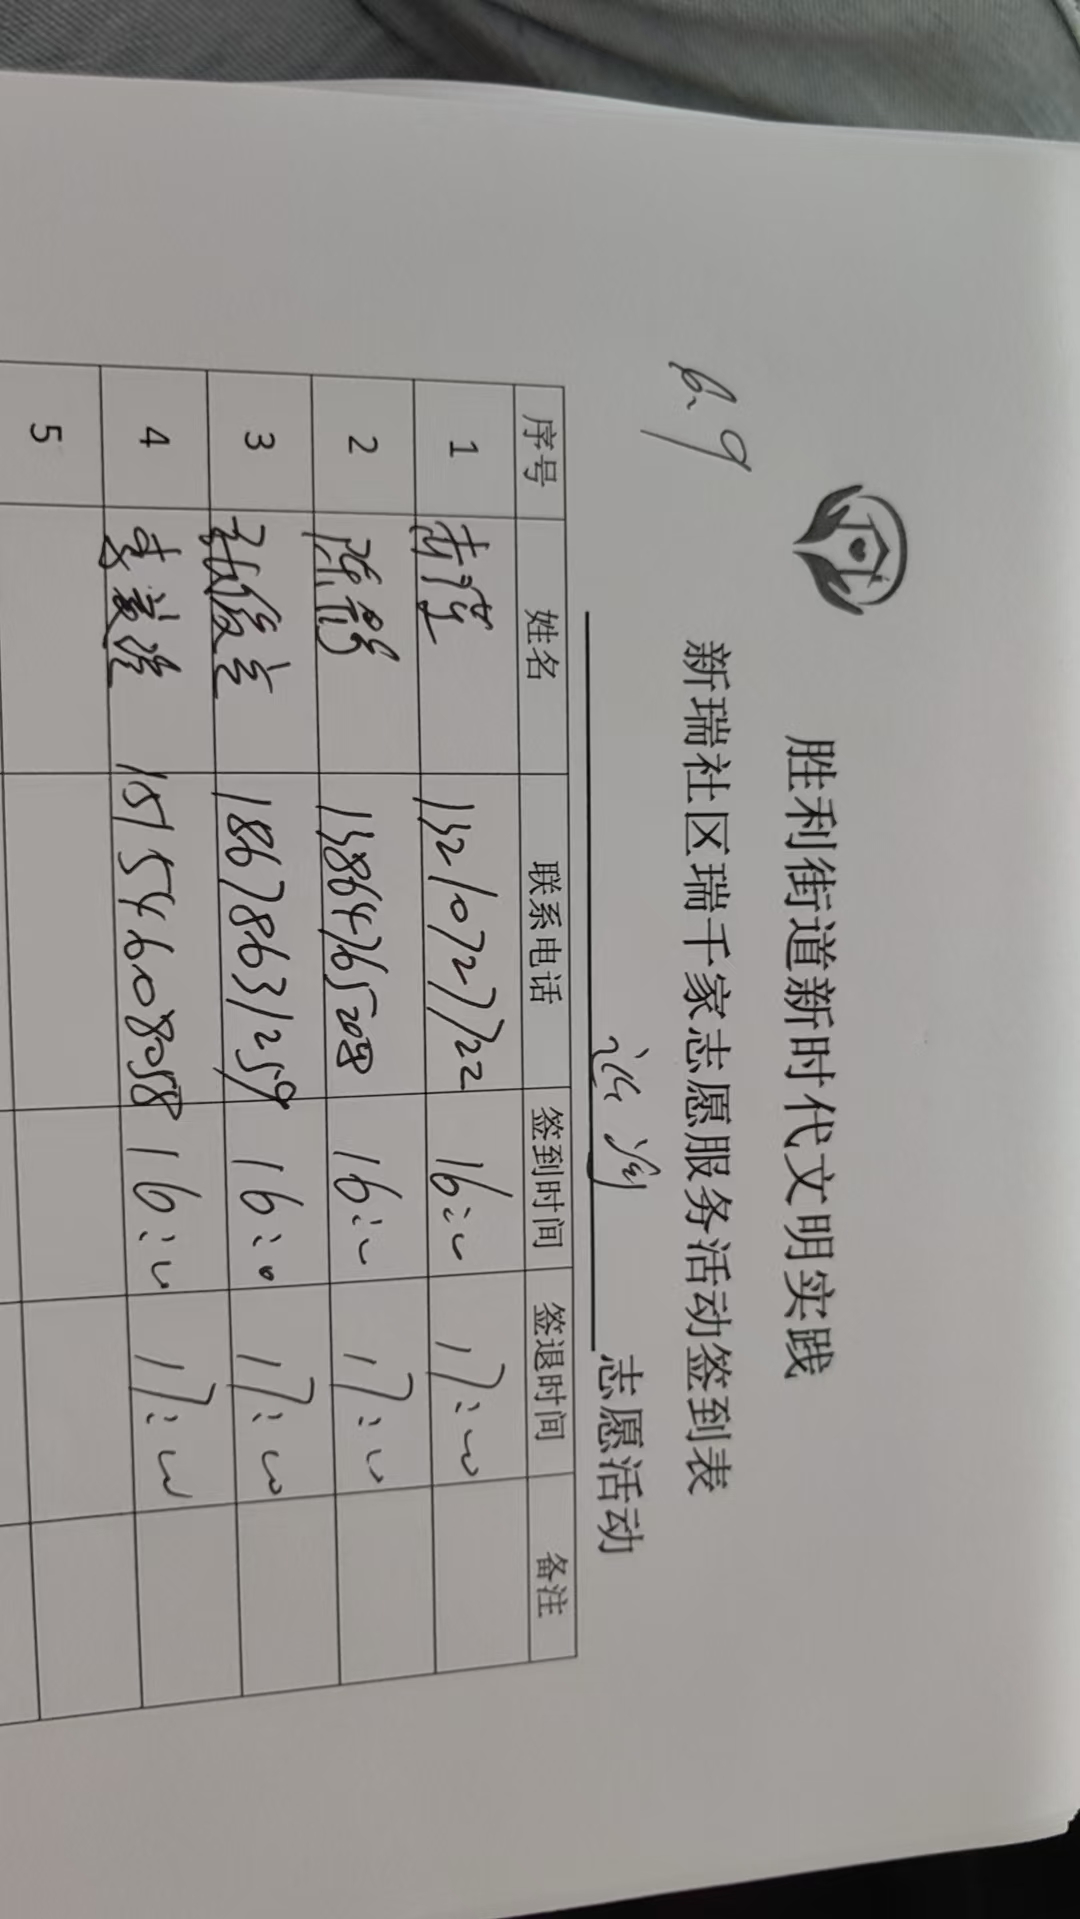 6.9
胜利街道新时代文明实践
新瑞社区瑞千家志愿服务活动签到表
志愿活动
序号 姓名 联系电话 签到时间 签退时间 备注
1 13210727722 16:00 17:00
2 陈鹤 13864765208 16:00 17:00
3 张俊兰 18678631259 16:00 17:00
4 15154608058 16:00 17:00
5